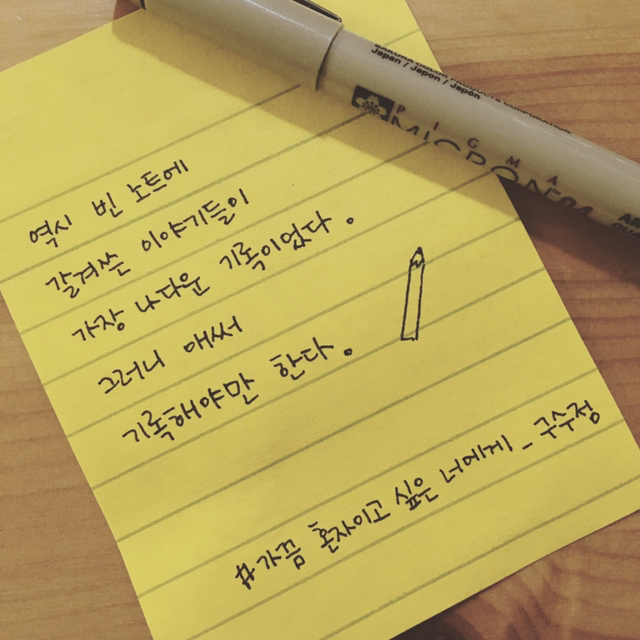 Japan / Japon / Japón
PIGMA
MICRON 04
역시 빈 노트에
갈겨쓴 이야기들이
가장 나다운 기록이었다.
그러니 애써
기록해야만 한다.
#가끔 혼자이고 싶은 너에게_구수정